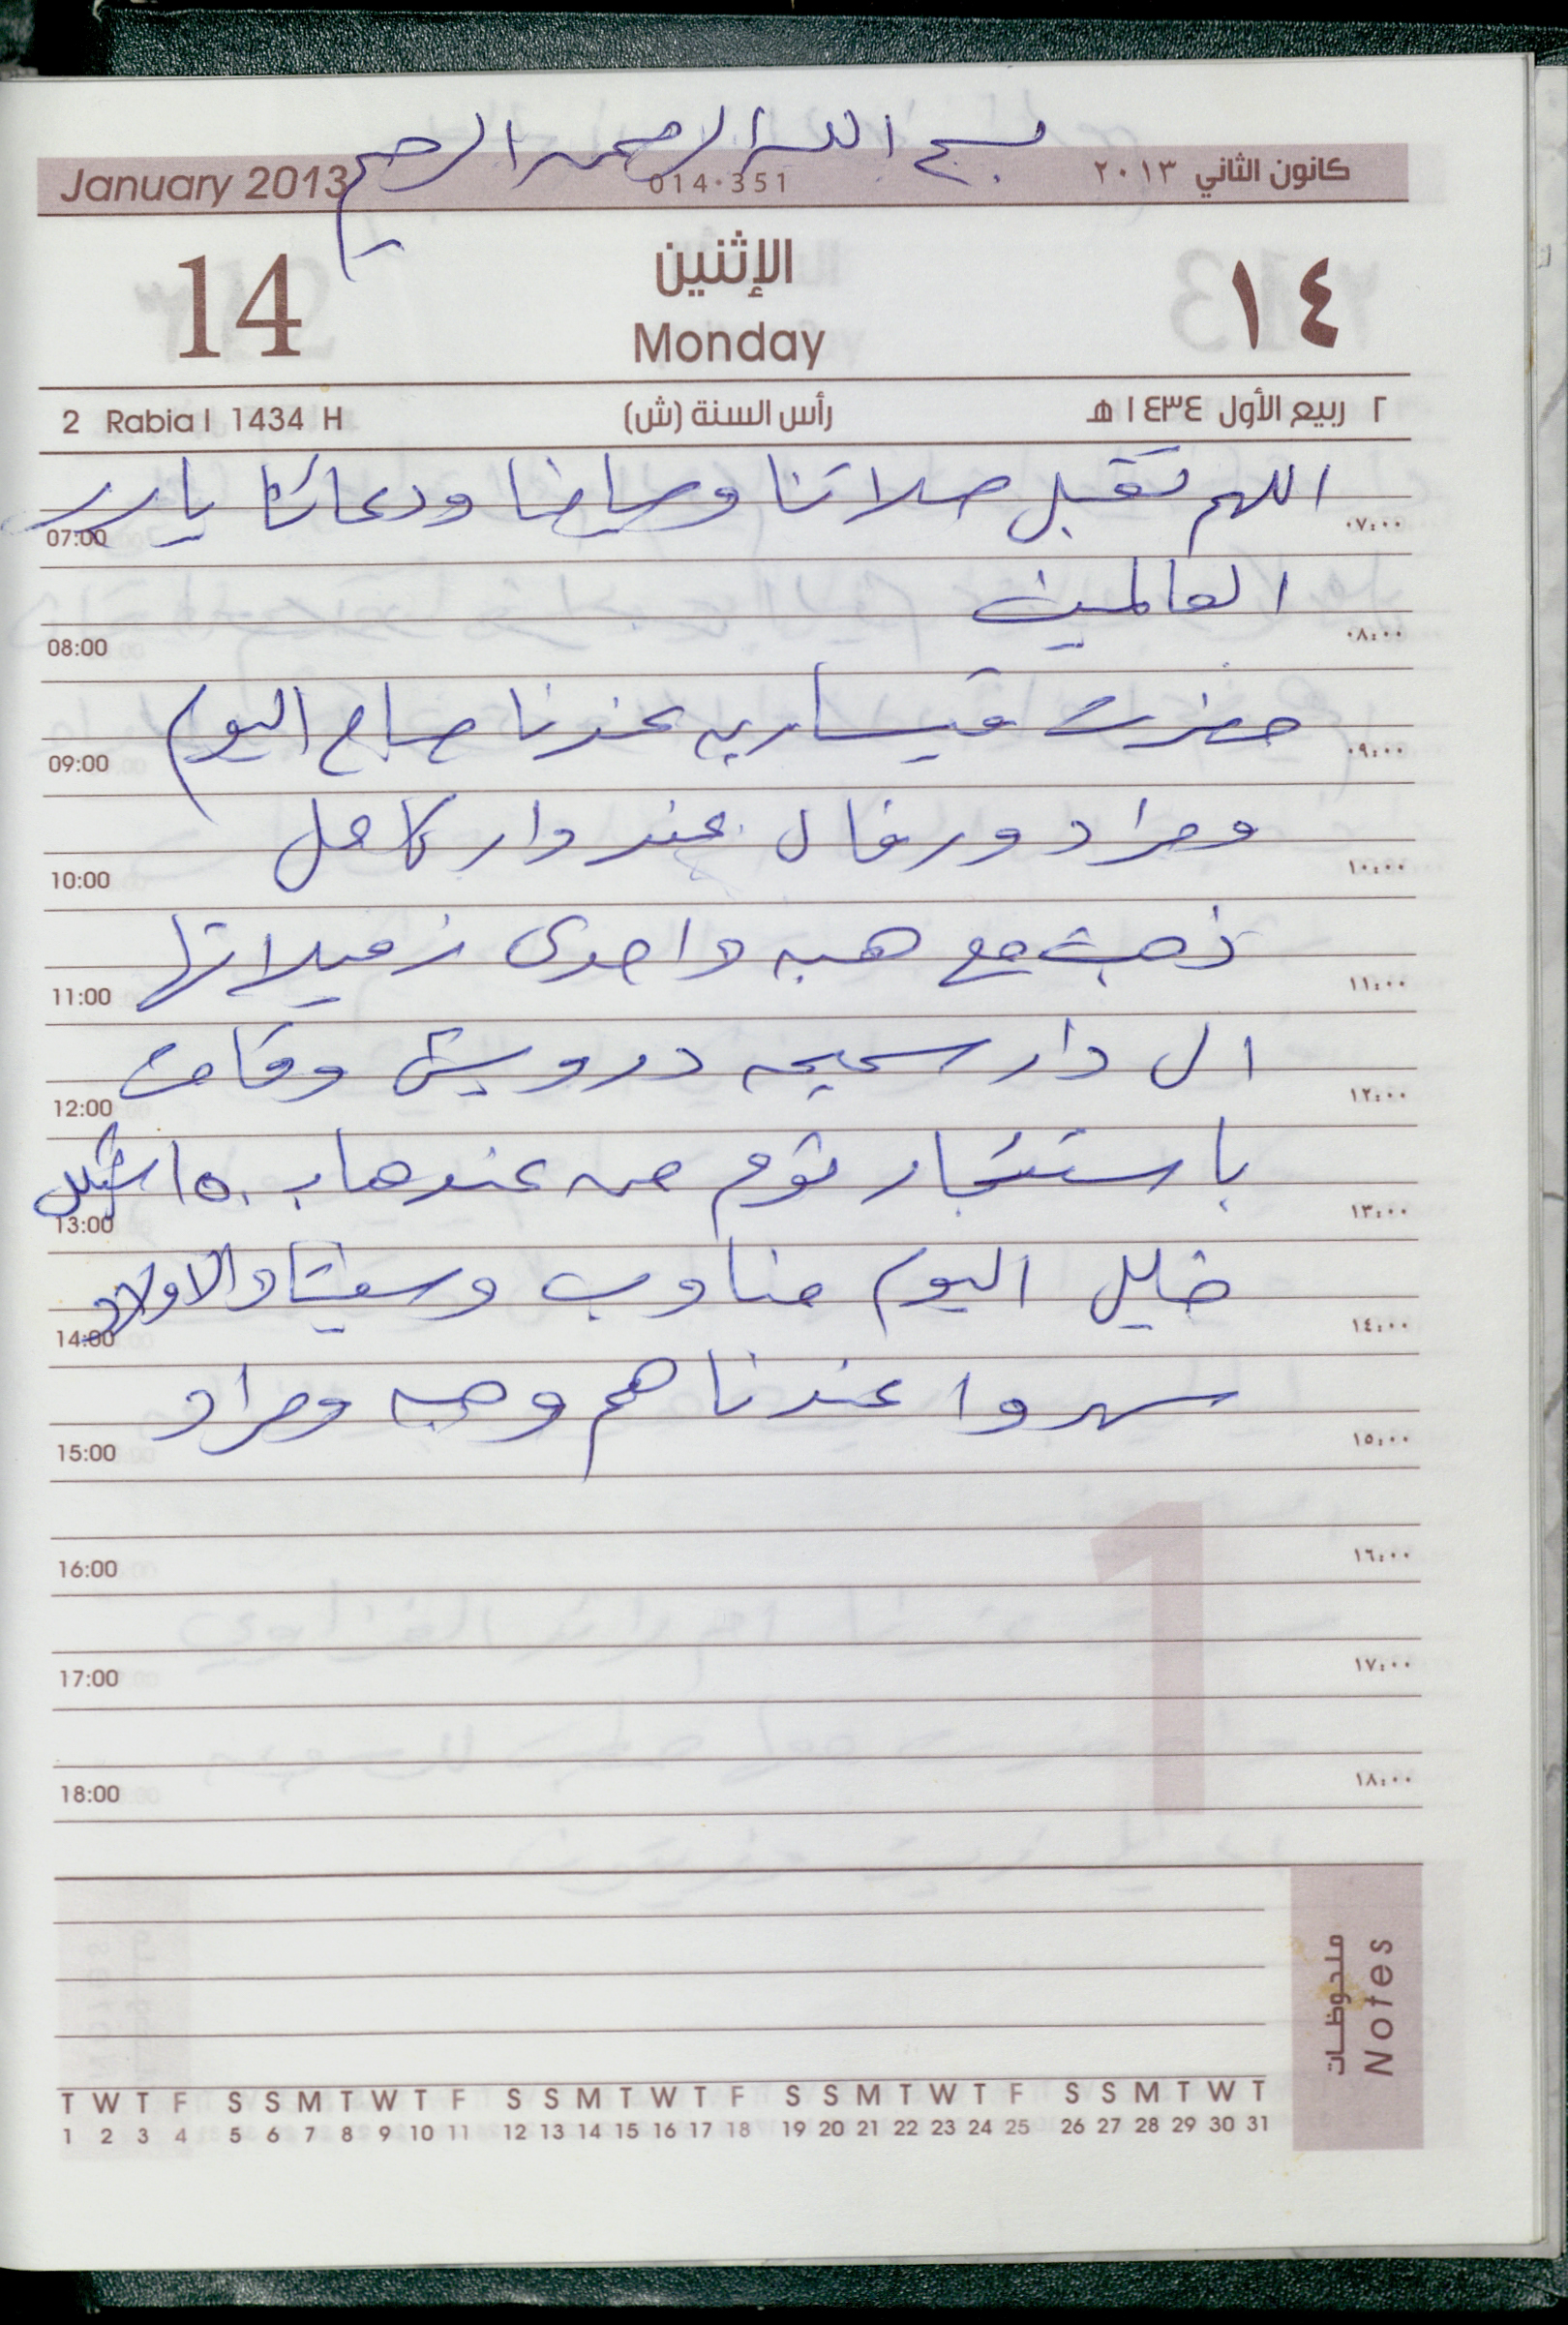 بسم الله الرحمن الرحيم
January 2013 014-351 كانون الثاني ٢٠١٣
14 الإثنين ١٤
Monday
2 Rabia I 1434 H رأس السنة (ش) ٢ ربيع الأول ١٤٣٤ هـ
اللهم تقبل صلاتنا وصيامنا ودعائنا يا رب
07:00 ٠٧:٠٠
العالمين
08:00 ٠٨:٠٠
حضرت قيساريه عندنا صباح اليوم
09:00 ٠٩:٠٠
ومراد ورفال عند دار كامل
10:00 ١٠:٠٠
ذهبت مع هبه واحدى زميلاتها
11:00 ١١:٠٠
ال دار سميحه درويش وقامت
12:00 ١٢:٠٠
باستئجار توم من عندها ب ١٥٠ شيكل
13:00 ١٣:٠٠
خليل اليوم مناوب والاولاد
14:00 ١٤:٠٠
سهروا عندنا هم وهبه ومراد
15:00 ١٥:٠٠
16:00 ١٦:٠٠
17:00 ١٧:٠٠
18:00 ١٨:٠٠
1
ملحوظات
Notes
T W T F S S M T W T F S S M T W T F S S M T W T F S S M T W T
1 2 3 4 5 6 7 8 9 10 11 12 13 14 15 16 17 18 19 20 21 22 23 24 25 26 27 28 29 30 31